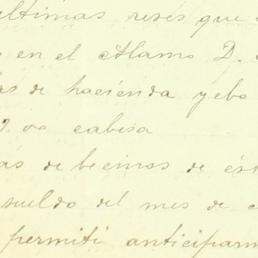 ultimas reses que
en el Alamo D.
as de hacienda yebo
9.00 cabisa
as de becinos de est
sueldo del mes de
permiti anticiparm